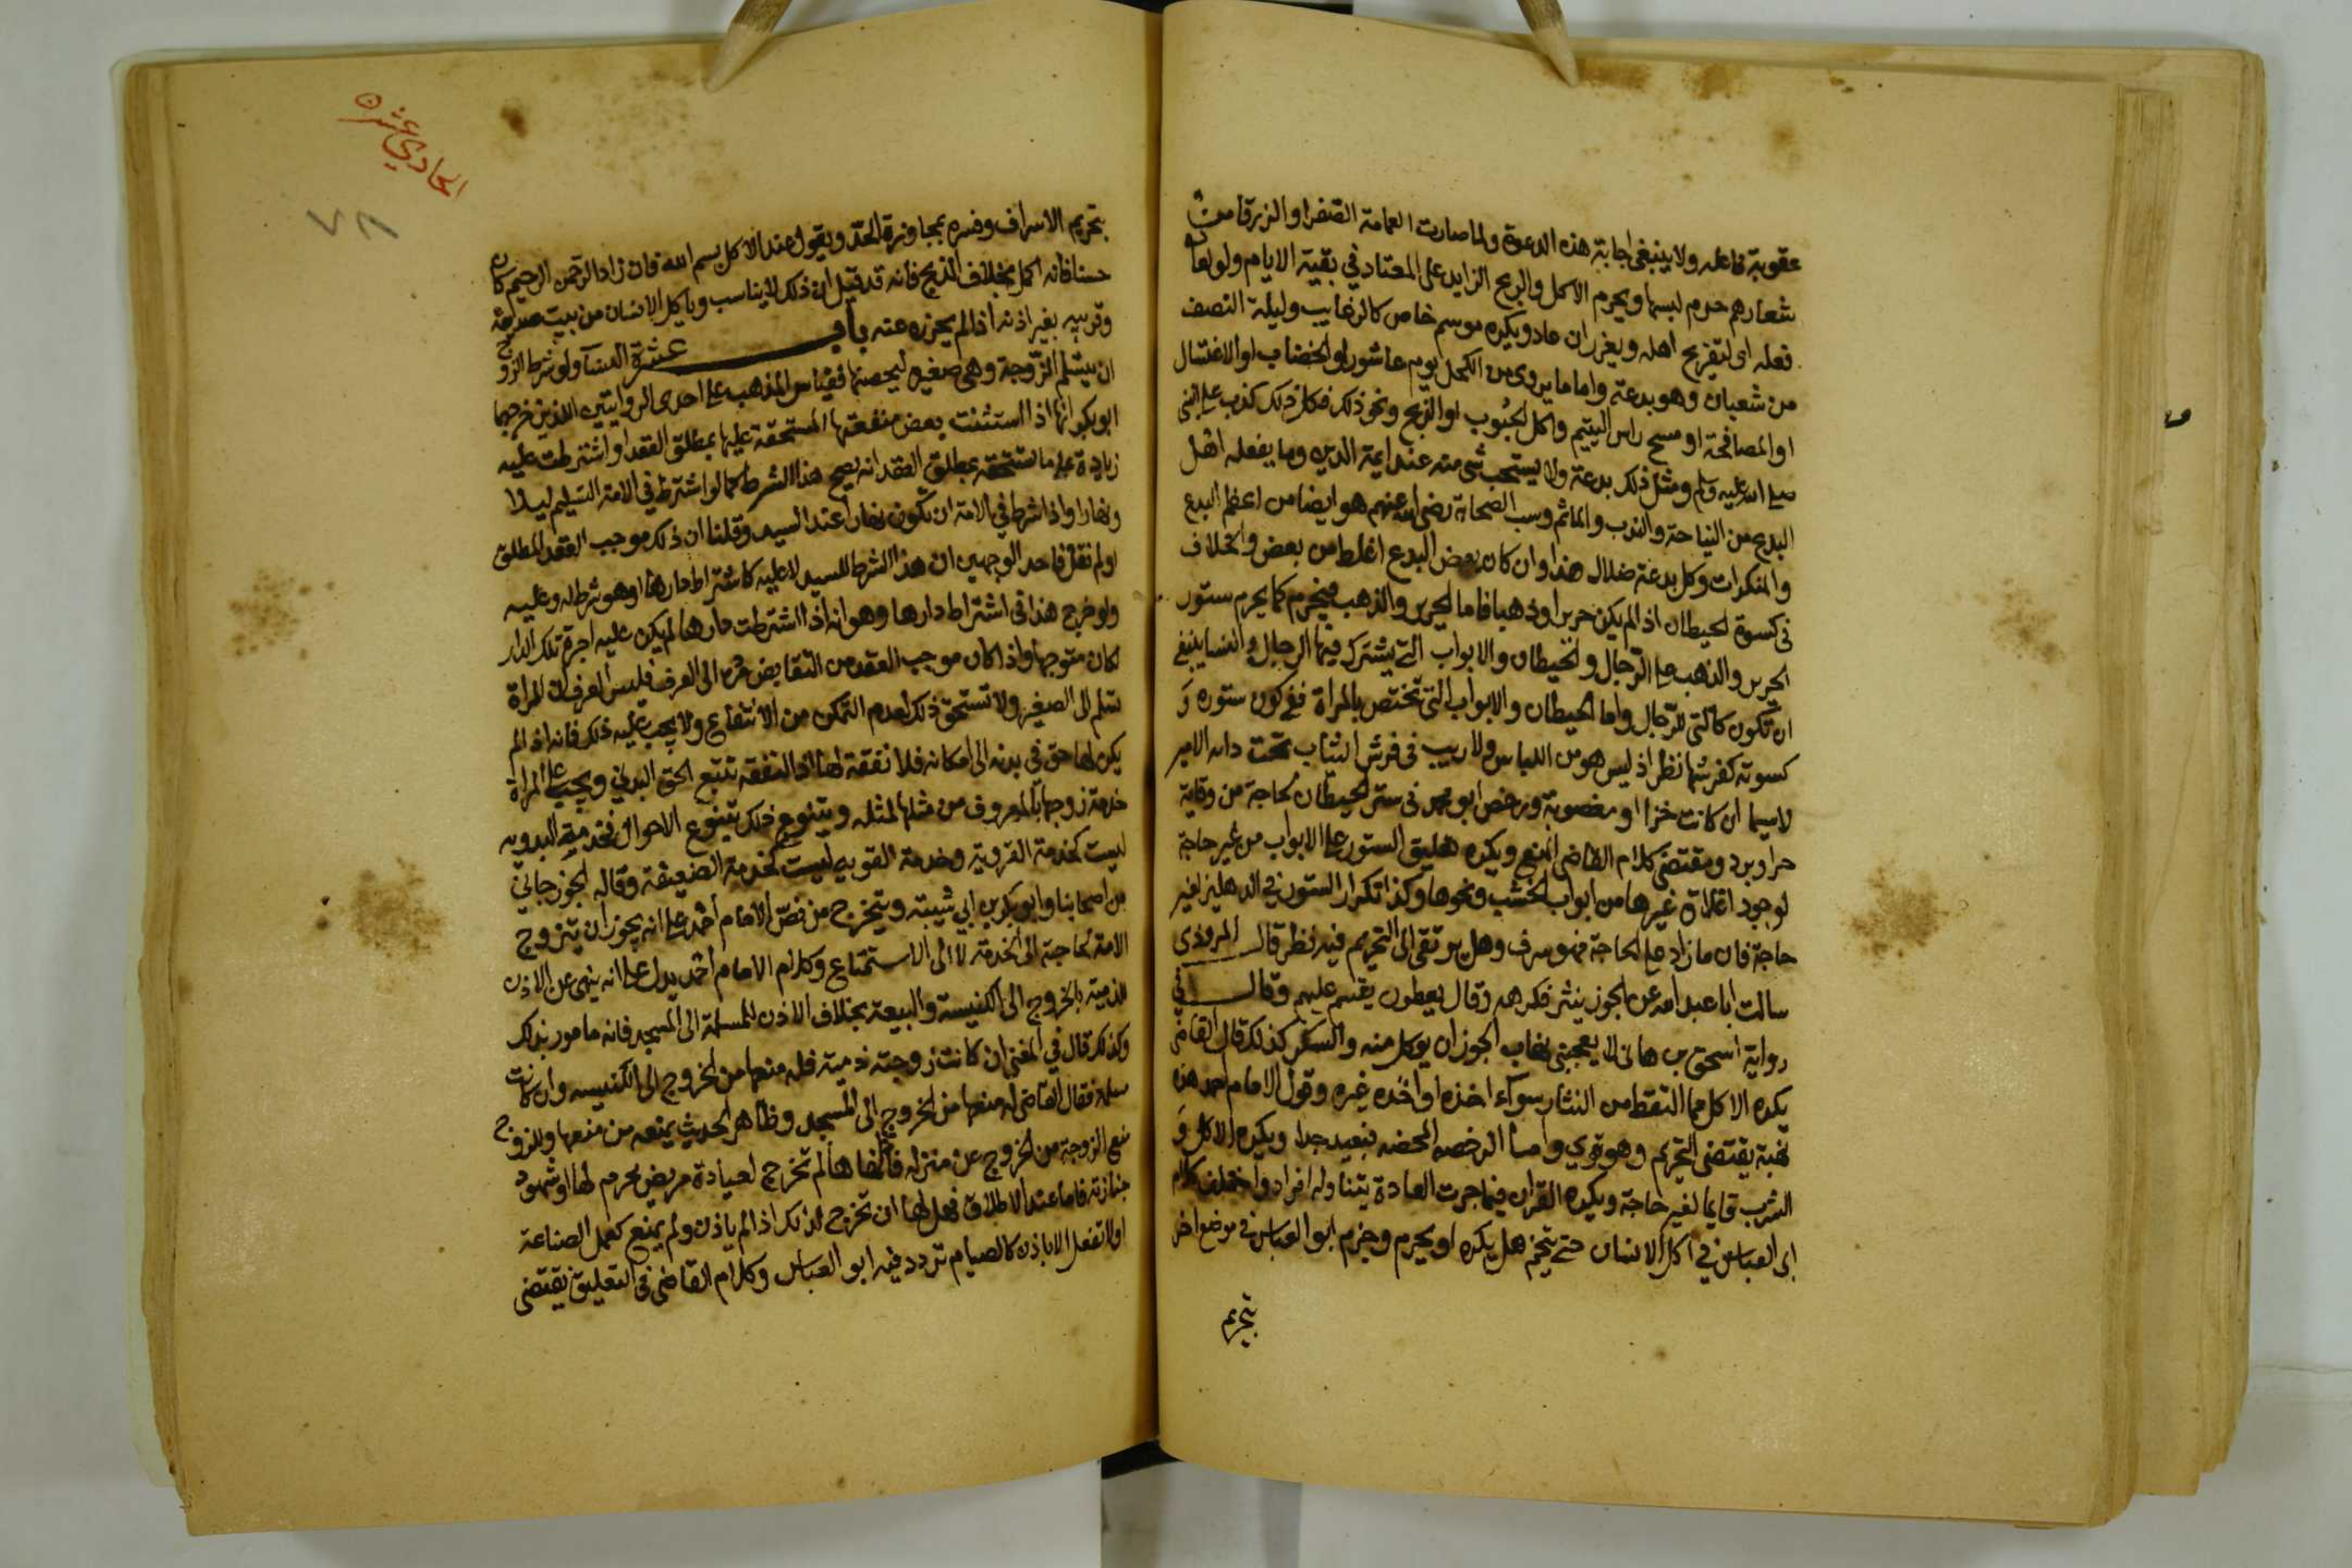 عقوبة فاعله ولا ينبغي اجابة هذه الدعوة ولما صارت العمامة الصفرا والزرقا من
شعارهم حرم لبسها ويحرم الاكل والذبح الزايد على المعتاد في بقية الايام ولو لعا
فعله او لتفريح اهله ويعزر ان عاد ويكره موسم خاص كالرغايب وليلة النصف
من شعبان وهو بدعة واما ما يروى من الكحل يوم عاشورا او الخضاب او الاغتسال
او المصافحة او مسح راس اليتيم واكل الحبوب او الذبح ونحو ذلك فكل ذلك كذب على النبي
صلى الله عليه وسلم ومثل ذلك بدعة ولا يستحب شي منه عند ايمة الدين وما يفعله اهل
البدع من النياحة والندب والماتم وسب الصحابة رضي الله عنهم هو ايضا من اعظم البدع
والمنكرات وكل بدعة ضلال هذا وان كان بعض البدع اغلظ من بعض والخلاف
في كسوة الحيطان اذ لم يكن حريرا وذهبا فاما الحرير والذهب فيحرم كما يحرم ستور
الحرير والذهب على الرجال والحيطان والابواب التي يشترك فيها الرجال والنسا ينبغي
ان تكون كالتي للرجال واما الحيطان والابواب التي تختص بالمراة ففي كون ستوره و
كسوته كفرشها نظر اذ ليس هو من اللباس ولا ريب في فرش الثياب تحت دابه الامير
لاسيما ان كانت خزا او مغصوبة ورخص ابو محمد في ستر الحيطان لحاجة من وقاية
حر او برد ومقتضى كلام القاضي المنع ويكره تعليق الستور على الابواب من غير حاجة
لوجود اغلاق غيرها من ابواب الخشب ونحوها وكذا تكرار الستور في الدهليز لغير
حاجة فان ما زاد على الحاجة فهو سرف وهل يرتقى الى التحريم فيه نظر قال المروذي
سالت ابا عبد الله عن الجوز ينثر فكرهه وقال يعطون يقسم عليهم وقال في
رواية اسحق بن هاني لا يعجبني نهاب الجوز ان يوكل منه والسكر كذلك قال القاضي
يكره الاكل مما التقط من النثار سواء اخذه او اخذه غيره وقول الامام احمد هذه
نهبة يقتضي التحريم وهو قوي واما الرخصه المحضه فبعيد جدا ويكره الاكل و
الشرب قايما لغير حاجة ويكره القران فيما جرت العادة بتناوله افرادا واختلف كلام
ابي العباس في اكل الانسان حتى يتخم هل يكره او يحرم وجزم ابو العباس في موضع اخر
بتحريم
الحادي عشره
٧٨
بتحريم الاسراف وفسره بمجاوزة الحد ويقول عند الاكل بسم الله فان زاد الرحمن الرحيم كان
حسنا فانه اكمل بخلاف الذبح فانه قد قيل ان ذلك لا يناسب وياكل الانسان من بيت صديقه
وقريبه بغير اذنه اذا لم يحرزه عنه باب عشرة النسا ولو شرط الزوج
ان يتسلم الزوجة وهي صغيره ليحصنها فقياس المذهب على احدى الروايتين اللذين خرجهما
ابو بكر انها اذا استثنت بعض منفعتها المستحقة عليها بمطلق العقد او اشترطت عليه
زيادة على ما تستحقه بمطلق العقد انه يصح هذا الشرط كما لو اشترط في الامة التسليم ليلا
ونهارا واذا شرط في الامة ان تكون نهارا عند السيد وقلنا ان ذلك موجب العقد المطلق
او لم نقل فاحد الوجهين ان هذا الشرط للسيد لا عليه كاشتراط دارها وهو شرط له وعليه
ولو خرج هذا في اشتراط دارها وهو انه اذا اشترطت دارها لم يكن عليه اجرة تلك الدار
لكان متوجها واذا كان موجب العقد من التقابض مرده الى العرف فليس العرف ان المراة
تسلم الى الصغير ولا تستحق ذلك لعدم التمكن من الانتفاع ولا يجب عليه ذلك فانه اذ الم
يكن لها حق في بدنه الى امكانه فلا نفقة لها اذ النفقه تتبع الحق البدني ويجب على المراة
خدمة زوجها بالمعروف من مثلها لمثله ويتنوع ذلك بتنوع الاحوال فخدمة البدويه
ليست كخدمة القروية وخدمة القويه ليست كخدمة الضعيفة وقاله الجوزجاني
من اصحابنا وابو بكر بن ابي شيبة ويتخرج من نص الامام احمد على انه يجوز ان يتزوج
الامة لحاجته الى الخدمة لا الى الاستمتاع وكلام الامام احمد يدل على انه ينهى عن الاذن
للذمية بالخروج الى الكنيسة والبيعة بخلاف الاذن للمسلمة الى المسجد فانه مامور بذلك
وكذلك قال في المغني ان كانت زوجته ذمية فله منعها من الخروج الى الكنيسه وان كانت
مسلمة فقال القاضي له منعها من الخروج الى المسجد وظاهر الحديث يمنعه من منعها وللزوج
منع الزوجة من الخروج عن منزله فاذا نهاها لم تخرج لعيادة مريض محرم لها او شهود
جنازته فاما عند الاطلاق فهل لها ان تخرج لذلك اذ الم ياذن ولم يمنع كعمل الصناعة
او لا تفعل الا باذن كالصيام تردد فيه ابو العباس وكلام القاضي في التعليق يقتضي